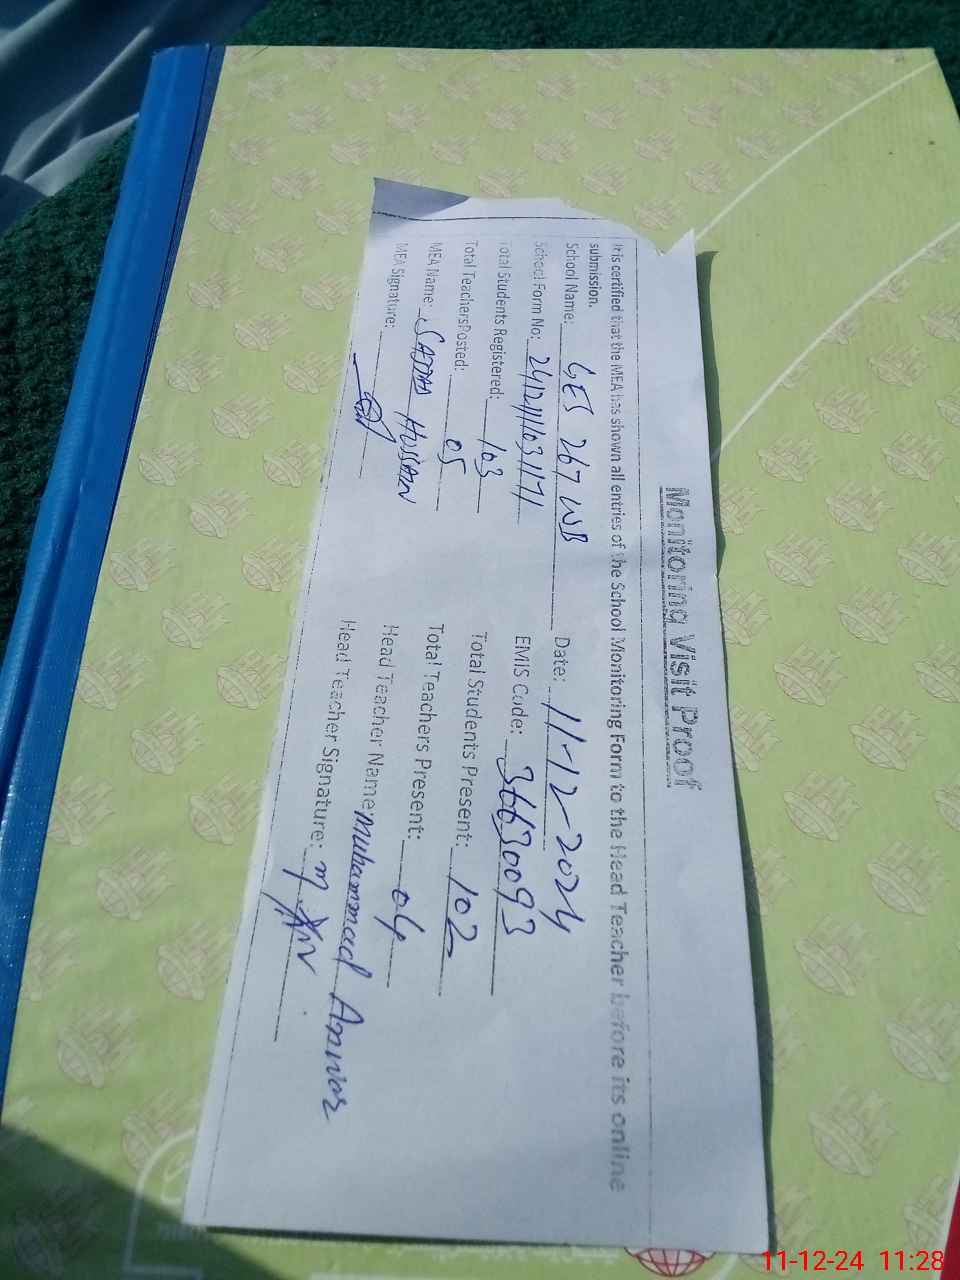 Monitoring Visit Proof
It is certified that the MEA has shown all entries of the School Monitoring Form to the Head Teacher before its online
submission.
School Name: GES 267 WB Date: 11-12-2024
School Form No: 2412111031171 EMIS Code: 36630093
Total Students Registered: 163 Total Students Present: 102
Total TeachersPosted: 05 Total Teachers Present: 04
MEA Name: SAJJAD HUSSAIN Head Teacher Name: Muhammad Anwar
MEA Signature: Head Teacher Signature:
11-12-24 11:28